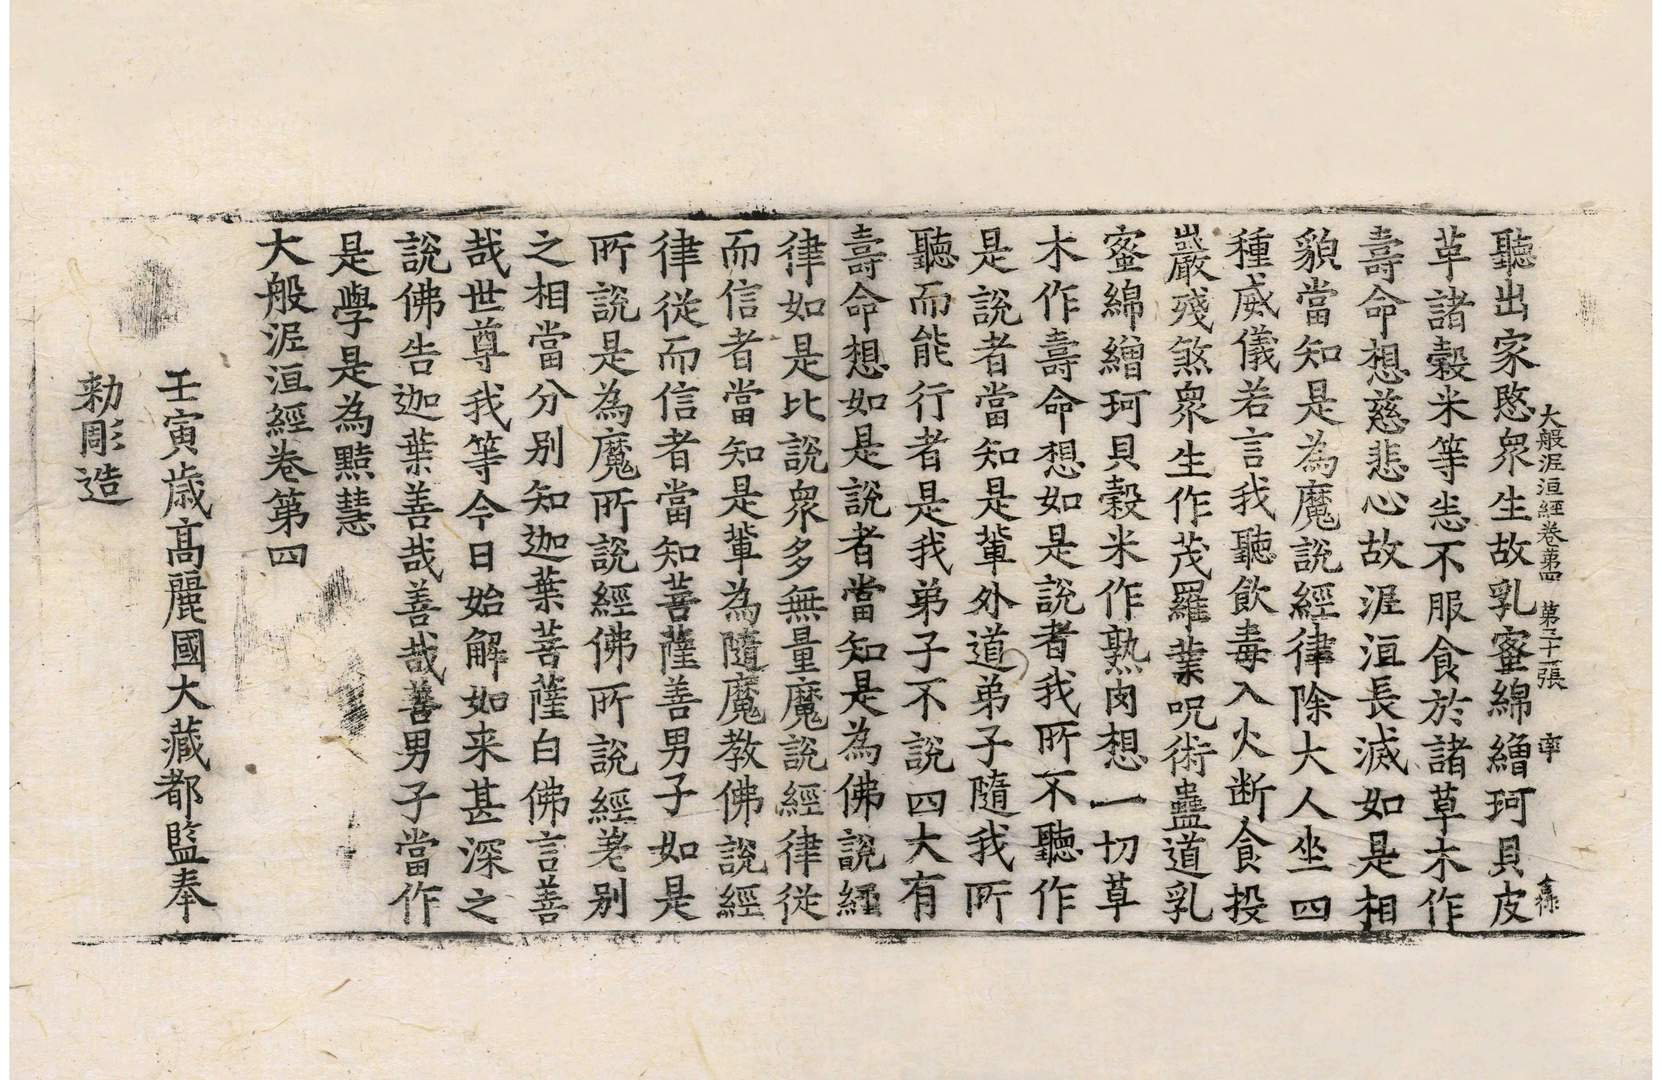 大般泥洹經卷第四　第二十一張　率
聽出家愍衆生故乳蜜綿繒珂貝皮
革諸穀米等恙不服食於諸草木作
壽命想慈悲心故泥洹長滅如是相
貌當知是為魔說經律除大人坐四
種威儀若言我聽飲毒入火断食投
巖殘煞衆生作茂羅業呪術蠱道乳
蜜綿繒珂貝穀米作熟肉想一切草
木作壽命想如是說者我所不聽作
是說者當知是輩外道弟子隨我所
聽而能行者是我弟子不說四大有
壽命想如是說者當知是為佛說經
律如是比說衆多無量魔說經律從
而信者當知是輩為隨魔教佛說經
律從而信者當知菩薩善男子如是
所說是為魔所說經佛所說經差别
之相當分别知迦葉菩薩白佛言善
哉世尊我等今日始解如来甚深之
說佛告迦葉善哉善哉善男子當作
是學是為黠慧
大般泥洹經卷第四
壬寅歳高麗國大藏都監奉
勑彫造